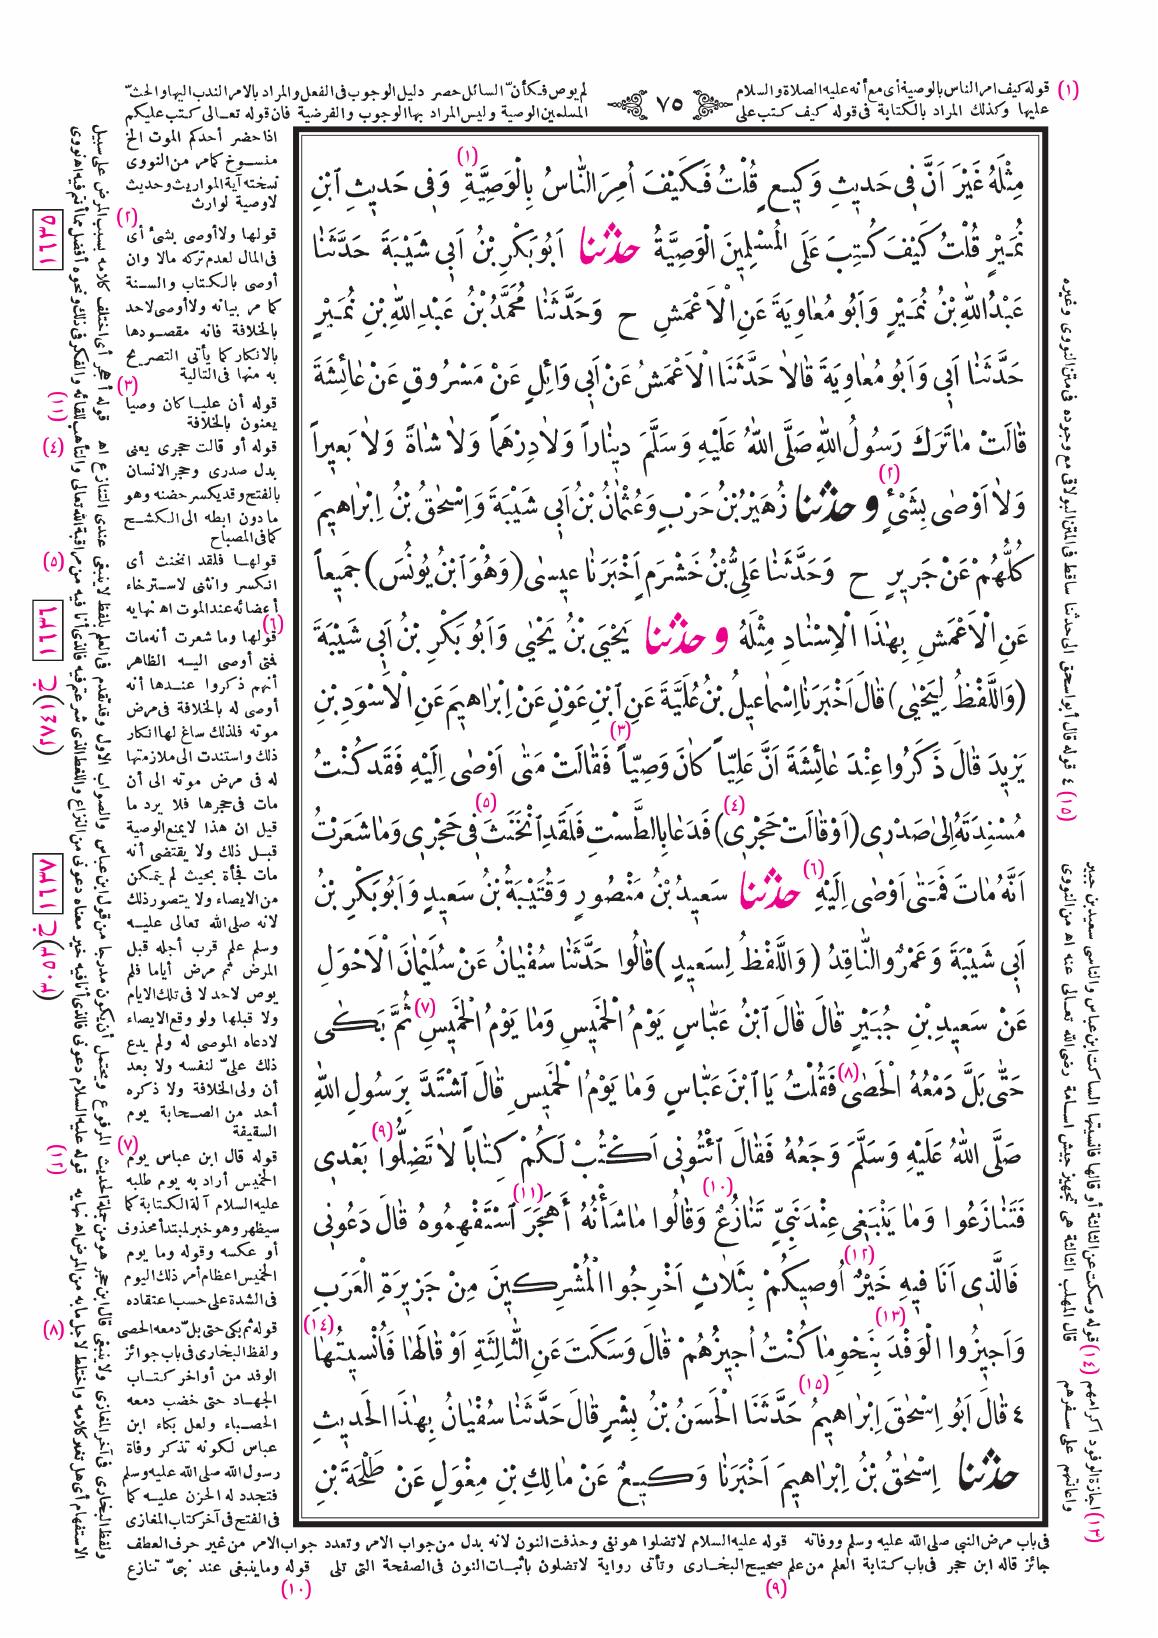 (١) قوله كيف امر الناس بالوصية أى مع أنه عليه الصلاة والسلام
عليها وكذلك المراد بالكتابة فى قوله كيف كتب على
٧٥
لم يوص فكأن السائل حصر دليل الوجوب فى الفعل والمراد بالامر الندب اليها والحثّ
المسلمين الوصية وليس المراد بها الوجوب والفرضية فان قوله تعالى كتب عليكم
مِثْلَهُ غَيْرَ اَنَّ فِى حَديثِ وَكيعٍ قُلْتُ فَكَيْفَ اُمِرَ النَّاسُ بِالْوَصِيَّةِ (١) وَفِى حَديثِ ابْنِ
نُمَيْرٍ قُلْتُ كَيْفَ كُتِبَ عَلَى الْمُسْلِمينَ الْوَصِيَّةُ حدثنا اَبُو بَكْرِ بْنُ اَبِى شَيْبَةَ حَدَّثَنَا
عَبْدُ اللهِ بْنُ نُمَيْرٍ وَاَبُو مُعَاوِيَةَ عَنِ الْاَعْمَشِ ح وَحَدَّثَنَا مُحَمَّدُ بْنُ عَبْدِ اللهِ بْنِ نُمَيْرٍ
حَدَّثَنَا اَبِى وَاَبُو مُعَاوِيَةَ قَالَا حَدَّثَنَا الْاَعْمَشُ عَنْ اَبِى وَائِلٍ عَنْ مَسْرُوقٍ عَنْ عَائِشَةَ
قَالَتْ مَا تَرَكَ رَسُولُ اللهِ صَلَّى اللهُ عَلَيْهِ وَسَلَّمَ دينَاراً وَلَا دِرْهَماً وَلَا شَاةً وَلَا بَعيراً
وَلَا اَوْصَى بِشَىْءٍ (٢) و حدثنا زُهَيْرُ بْنُ حَرْبٍ وَعُثْمَانُ بْنُ اَبِى شَيْبَةَ وَاِسْحٰقُ بْنُ اِبْرَاهيمَ
كُلُّهُمْ عَنْ جَريرٍ ح وَحَدَّثَنَا عَلِىُّ بْنُ خَشْرَمٍ اَخْبَرَنَا عيسٰى (وَهُوَ ابْنُ يُونُسَ) جَميعاً
عَنِ الْاَعْمَشِ بِهٰذَا الْاِسْنَادِ مِثْلَهُ و حدثنا يَحْيَى بْنُ يَحْيٰى وَاَبُو بَكْرِ بْنُ اَبِى شَيْبَةَ
(وَاللَّفْظُ لِيَحْيٰى) قَالَ اَخْبَرَنَا اِسْمَاعيلُ بْنُ عُلَيَّةَ عَنِ ابْنِ عَوْنٍ عَنْ اِبْرَاهيمَ عَنِ الْاَسْوَدِ بْنِ
يَزيدَ قَالَ ذَكَرُوا عِنْدَ عَائِشَةَ اَنَّ عَلِيّاً كَانَ وَصِيّاً (٣) فَقَالَتْ مَتٰى اَوْصٰى اِلَيْهِ فَقَدْ كُنْتُ
مُسْنِدَتَهُ اِلٰى صَدْرى (اَوْ قَالَتْ حَجْرِى) (٤) فَدَعَا بِالطَّسْتِ فَلَقَدِ انْخَنَثَ (٥) فِى حَجْرِى وَمَا شَعَرْتُ
اَنَّهُ مَاتَ فَمَتٰى اَوْصٰى اِلَيْهِ (٦) حدثنا سَعيدُ بْنُ مَنْصُورٍ وَقُتَيْبَةُ بْنُ سَعيدٍ وَاَبُو بَكْرِ بْنُ
اَبِى شَيْبَةَ وَعَمْرٌو النَّاقِدُ (وَاللَّفْظُ لِسَعيدٍ) قَالُوا حَدَّثَنَا سُفْيَانُ عَنْ سُلَيْمَانَ الْاَحْوَلِ
عَنْ سَعيدِ بْنِ جُبَيْرٍ قَالَ قَالَ ابْنُ عَبَّاسٍ يَوْمُ الْخَميسِ وَمَا يَوْمُ الْخَميسِ (٧) ثُمَّ بَكٰى
حَتّٰى بَلَّ دَمْعُهُ الْحَصٰى (٨) فَقُلْتُ يَا ابْنَ عَبَّاسٍ وَمَا يَوْمُ الْخَميسِ قَالَ اشْتَدَّ بِرَسُولِ اللهِ
صَلَّى اللهُ عَلَيْهِ وَسَلَّمَ وَجَعُهُ فَقَالَ ائْتُونِى اَكْتُبْ لَكُمْ كِتَاباً لَا تَضِلُّوا (٩) بَعْدِى
فَتَنَازَعُوا وَمَا يَنْبَغِى عِنْدَ نَبِىٍّ تَنَازُعٌ (١٠) وَقَالُوا مَا شَأْنُهُ أَهَجَرَ (١١) اسْتَفْهِمُوهُ قَالَ دَعُونِى
فَالَّذِى اَنَا فيهِ خَيْرٌ (١٢) اُوصيكُمْ بِثَلَاثٍ اَخْرِجُوا الْمُشْرِكينَ مِنْ جَزيرَةِ الْعَرَبِ
وَاَجيزُوا الْوَفْدَ (١٣) بِنَحْوِ مَا كُنْتُ اُجيزُهُمْ قَالَ وَسَكَتَ عَنِ الثَّالِثَةِ اَوْ قَالَهَا فَاُنْسيتُهَا (١٤)
٤ قَالَ اَبُو اِسْحٰقَ اِبْرَاهيمُ (١٥) حَدَّثَنَا الْحَسَنُ بْنُ بِشْرٍ قَالَ حَدَّثَنَا سُفْيَانُ بِهٰذَا الْحَديثِ
حدثنا اِسْحٰقُ بْنُ اِبْرَاهيمَ اَخْبَرَنَا وَكيعٌ عَنْ مَالِكِ بْنِ مِغْوَلٍ عَنْ طَلْحَةَ بْنِ
اذا حضر أحدكم الموت الخ
منسوخ كما مر من النووى
نسخته آية المواريث وحديث
لا وصية لوارث
(٢) قولها ولا أوصى بشئ أى
فى المال لعدم تركه مالا وان
أوصى بالكتاب والسنة
كما مر بيانه ولا أوصى لاحد
بالخلافة فانه مقصودها
بالانكار كما يأتى التصريح
به منها فى التالية
(٣) قوله أن عليا كان وصيا
يعنون بالخلافة
(٤) قوله أو قالت حجرى يعنى
بدل صدرى وحجر الانسان
بالفتح وقد يكسر حضنه وهو
ما دون ابطه الى الكشح
كما فى المصباح
(٥) قولها فلقد انخنث أى
انكسر وانثنى لاسترخاء
أعضائه عند الموت اه نهايه
(٦) قولها وما شعرت أنه مات
فمتى أوصى اليه الظاهر
أنهم ذكروا عندها أنه
أوصى له بالخلافة فى مرض
موته فلذلك ساغ لها انكار
ذلك واستندت الى ملازمتها
له فى مرض موته الى أن
مات فى حجرها فلا يرد ما
قيل ان هذا لا يمنع الوصية
قبل ذلك ولا يقتضى أنه
مات فجأة بحيث لم يتمكن
من الايصاء ولا يتصور ذلك
لانه صلى الله تعالى عليه
وسلم علم قرب أجله قبل
المرض ثم مرض أياما فلم
يوص لاحد لا فى تلك الايام
ولا قبلها ولو وقع الايصاء
لادعاه الموصى له ولم يدع
ذلك علىّ لنفسه ولا بعد
أن ولى الخلافة ولا ذكره
أحد من الصحابة يوم
السقيفة
(٧) قوله قال ابن عباس يوم
الخميس أراد به يوم طلبه
عليه السلام آلة الكتابة كما
سيظهر وهو خبر لمبتدأ محذوف
أو عكسه وقوله وما يوم
الخميس اعظام أمر ذلك اليوم
فى الشدة على حسب اعتقاده
(٨) قوله ثم بكى حتى بلّ دمعه الحصى
ولفظ البخارى فى باب جوائز
الوفد من أواخر كتاب
الجهاد حتى خضب دمعه
الحصباء ولعل بكاء ابن
عباس لكونه تذكر وفاة
رسول الله صلى الله عليه وسلم
فتجدد له الحزن عليه كما
فى الفتح فى آخر كتاب المغازى
فى باب مرض النبى صلى الله عليه وسلم ووفاته (٩) قوله عليه السلام لا تضلوا هو نفى وحذفت النون لانه بدل من جواب الامر وتعدد جواب الامر من غير حرف العطف
جائز قاله ابن حجر فى باب كتابة العلم من علم صحيح البخارى وتأتى رواية لا تضلون باثبات النون فى الصفحة التى تلى (١٠) قوله وما ينبغى عند نبىّ تنازع
(١١) قوله أهجر أى اختلف كلامه بسبب المرض على سبيل
(١٢)
(١٣) اجازة الوفود اكرامهم
واعانتهم على سفرهم
(١٤) قوله وسكت عن الثالثة أو قالها فانسيتها الساكت ابن عباس والناسى سعيد بن جبير
قال المهلب الثالثة هى تجهيز جيش اسامة رضى الله تعالى عنه اه من النووى
(١٥) ٤ قوله قال أبو اسحق الى حدثنا ساقط فى المتن البولاقى مع وجوده فى متن النووى وغيره